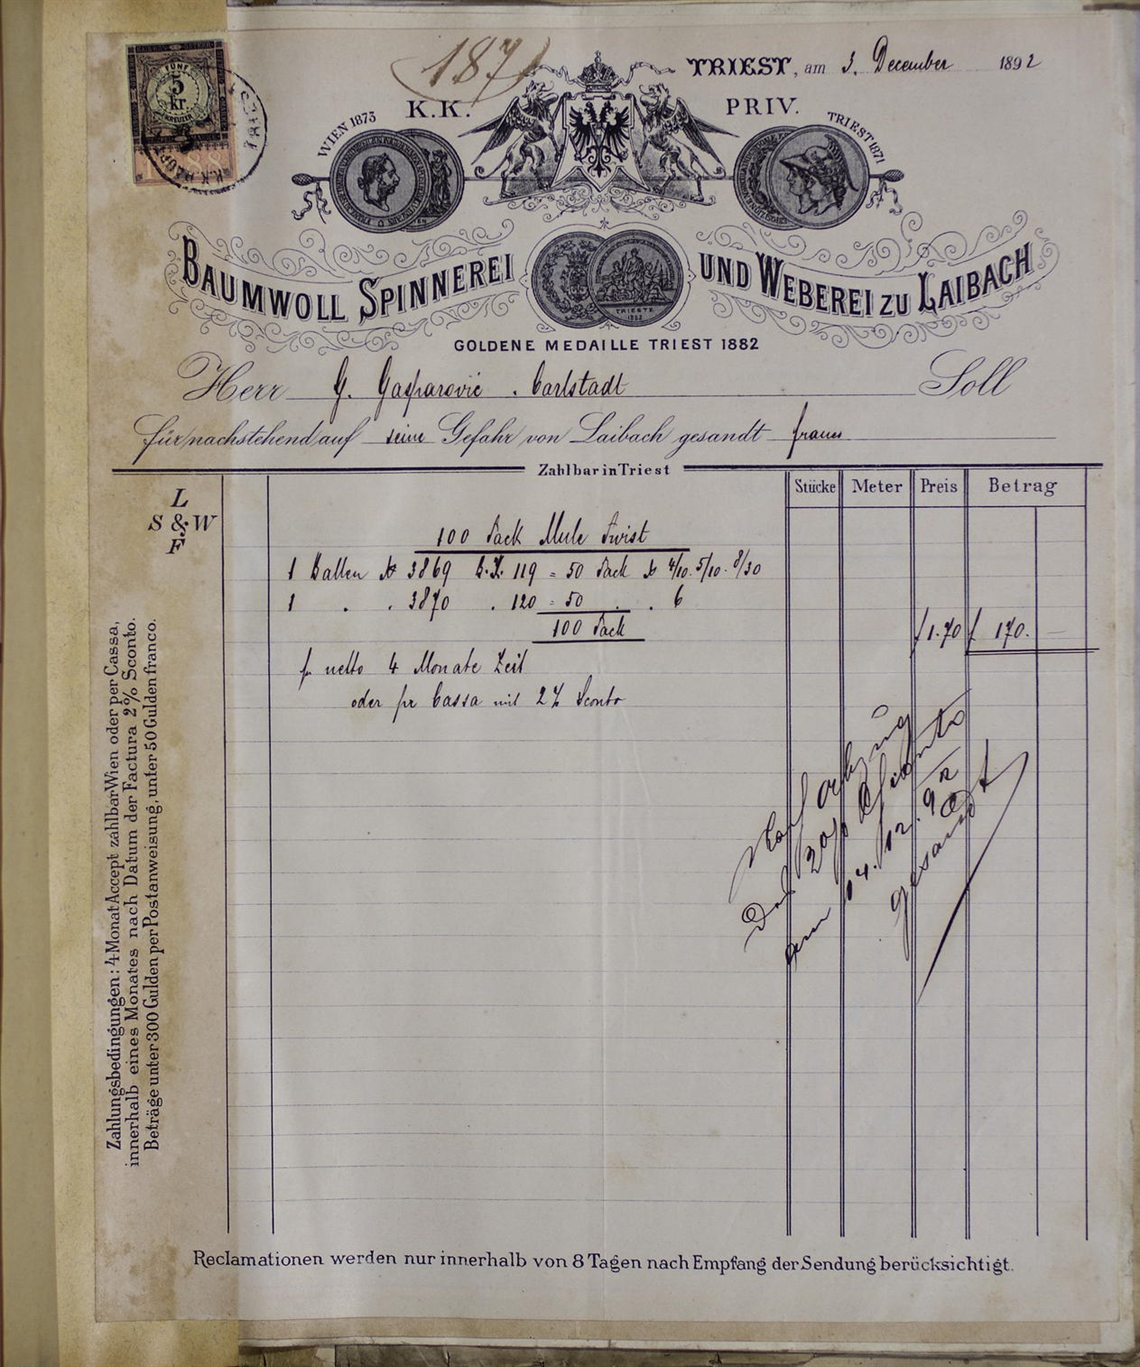 187
FÜNF
5
kr.
KREUZER
TRIEST
TRIEST, am 3. December 1892
K.K. PRIV.
WIEN 1873
TRIEST 1871
BAUMWOLL SPINNEREI UND WEBEREI ZU LAIBACH
TRIESTE
1882
GOLDENE MEDAILLE TRIEST 1882
Herr G. Gasparović . Carlstadt Soll
für nachstehend auf seine Gefahr von Laibach gesandt franco
Zahlbar in Triest
Stücke Meter Preis Betrag
L
S & W
F
100 Pack Mule Twist
1 Ballen № 3869 B.Z. 119 = 50 Pack № 4/10. 5/10. 8/30
1 . . 3870 . 120 = 50 . . 6
100 Pack f 1.70 f 170. —
pr netto 4 Monate Zeit
oder pr Cassa mit 2% Sconto
am 14./12. 92
gesandt
Zahlungsbedingungen: 4 Monat Accept zahlbar Wien oder per Cassa,
innerhalb eines Monates nach Datum der Factura 2% Sconto.
Beträge unter 300 Gulden per Postanweisung, unter 50 Gulden franco.
Reclamationen werden nur innerhalb von 8 Tagen nach Empfang der Sendung berücksichtigt.